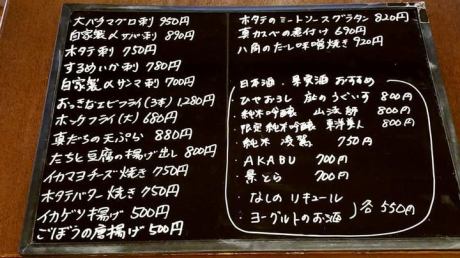 大バチマグロ刺 950円
自家製〆サバ刺 890円
ホタテ刺 750円
するめいか刺 780円
自家製〆サンマ刺 700円
おっきなエビフライ(3本) 1280円
ホッケフライ(大) 680円
真だちの天ぷら 880円
たちと豆腐の揚げ出し 800円
イカマヨチーズ焼き 750円
ホタテバター焼き 750円
イカゲソ揚げ 500円
ごぼうの唐揚げ 500円
ホタテのミートソースグラタン 820円
真カスベの煮付け 690円
八角のだし味噌焼き 920円
日本酒・果実酒 おすすめ
・ひやおろし 庭のうぐいす 800円
・純米吟醸 山法師 800円
・限定純米吟醸 東洋美人 800円
・純米 浅黄 750円
・AKABU 700円
・景とら 700円
・なしのリキュール
・ヨーグルトのお酒
各550円